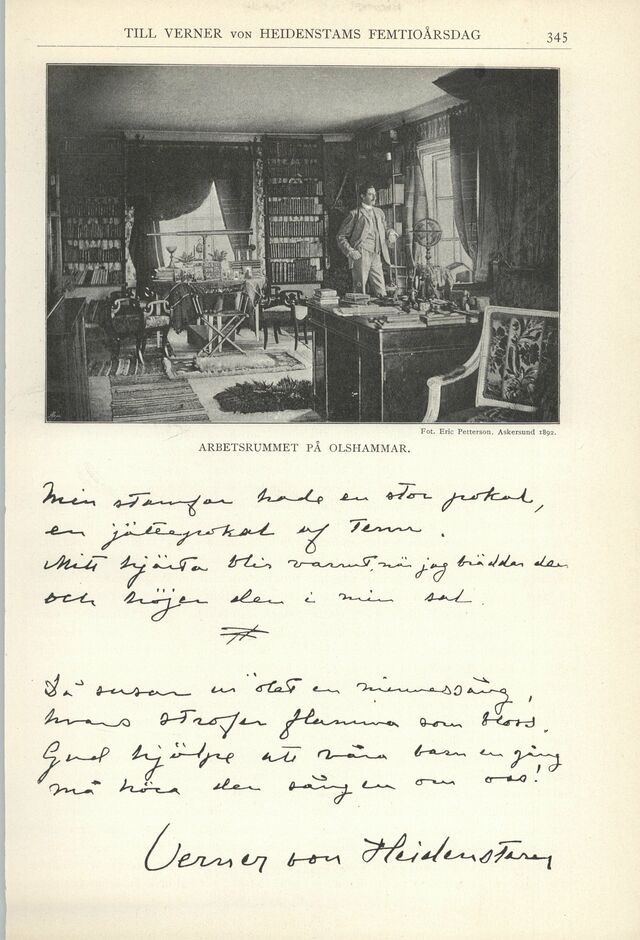 TILL VERNER VON HEIDENSTAMS FEMTIOÅRSDAG
345
Fot. Eric Petterson. Askersund 1892.
ARBETSRUMMET PÅ OLSHAMMAR.
Min stamfar hade en stor pokal,
en jättepokal af Tenn.
Mitt hjärta blir varmt, när jag bräddar den
och höjer den i min sal.
Då susar ur ölet en minnessång,
hvars strofer flamma som bloss.
Gud hjälpe att våra barn en gång
må höra den sången om oss!
Verner von Heidenstam